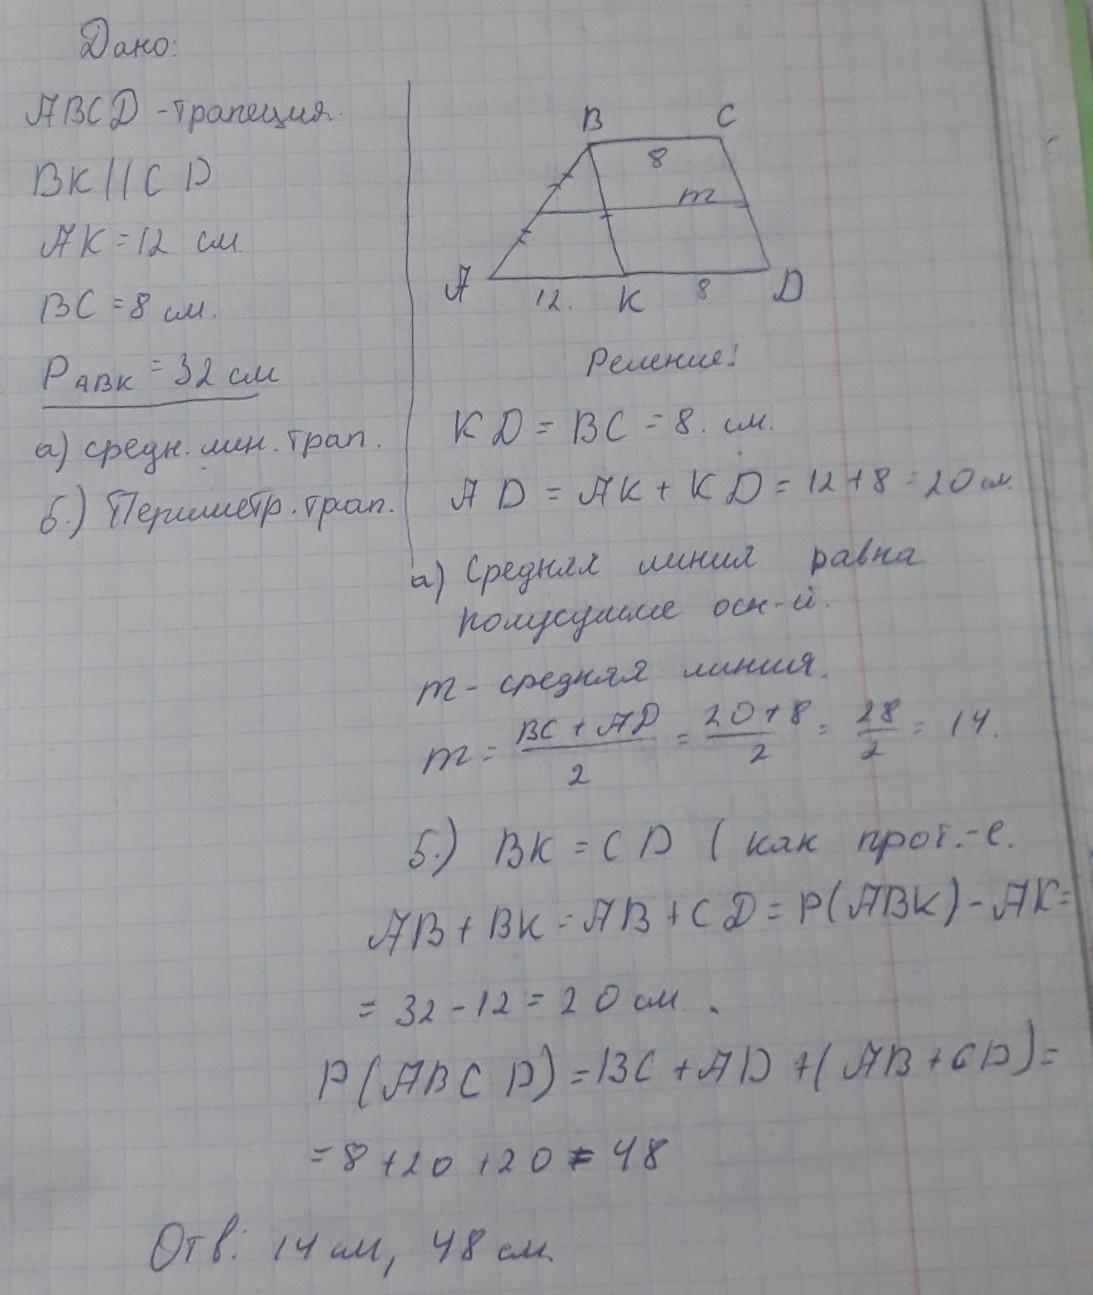 Дано:
ABCD - трапеция.
BK || CD
AK = 12 см
BC = 8 см.
P ABK = 32 см
а) средн. лин. трап.
б.) Периметр. трап.
B C
8
m
A 12. K 8 D
Решение!
KD = BC = 8. см.
AD = AK + KD = 12 + 8 = 20 см.
а) Средняя линия равна
полусумме осн-й.
m - средняя линия.
m = BC + AD / 2 = 20 + 8 / 2 = 28 / 2 = 14.
б.) BK = CD ( как прот.-е.
AB + BK = AB + CD = P(ABK) - AK =
= 32 - 12 = 20 см .
P(ABCD) = BC + AD + (AB + CD) =
= 8 + 20 + 20 = 48
Отв: 14 см, 48 см